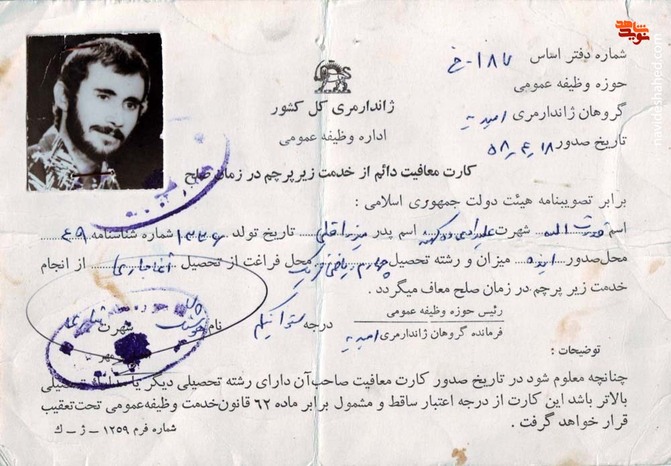 شاهد
نوید
navideshahed.com
شماره دفتر اساس ۱۸۲-خ
حوزه وظیفه عمومی
ژاندارمری کل کشور
گروهان ژاندارمری امیدیه
اداره وظیفه عمومی
تاریخ صدور ۱۸ـ۴ـ۵۸
کارت معافیت دائم از خدمت زیر پرچم در زمان صلح
برابر تصویبنامه هیئت دولت جمهوری اسلامی :
اسم قدرت اله شهرت علیدادی ده کهنه اسم پدر میرزاقلی تاریخ تولد ۱۳۳۶ شماره شناسنامه ۴۹
محل صدور ایذه میزان و رشته تحصیل چهارم ریاضی فیزیک محل فراغت از تحصیل آغاجاری از انجام
خدمت زیر پرچم در زمان صلح معاف میگردد .
رئیس حوزه وظیفه عمومی
فرمانده گروهان ژاندارمری امیدیه درجه ستوانیکم نام شهرت
توضیحات :
چنانچه معلوم شود در تاریخ صدور کارت معافیت صاحب آن دارای رشته تحصیلی دیگر یا مدارک تحصیلی
بالاتر باشد این کارت از درجه اعتبار ساقط و مشمول برابر ماده ۶۲ قانون خدمت وظیفه عمومی تحت تعقیب
قرار خواهد گرفت .
شماره فرم ۱۲۵۹ – ژ – ك